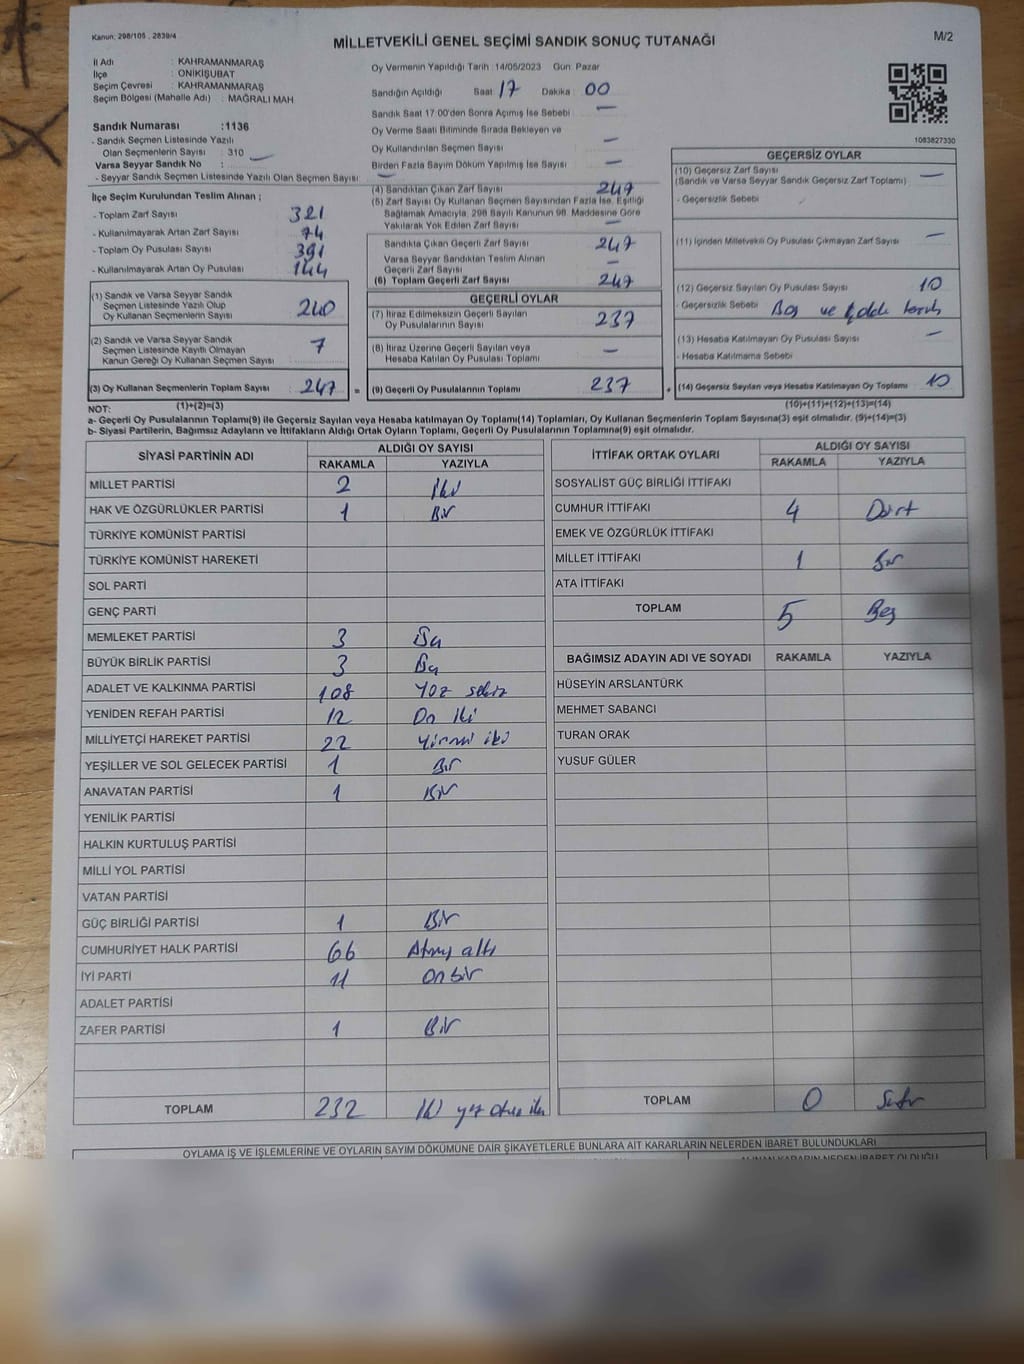 Kanun: 298/105 , 2839/4
MİLLETVEKİLİ GENEL SEÇİMİ SANDIK SONUÇ TUTANAĞI
M/2
İl Adı : KAHRAMANMARAŞ
İlçe : ONİKİŞUBAT
Seçim Çevresi : KAHRAMANMARAŞ
Seçim Bölgesi (Mahalle Adı) : MAĞRALI MAH
Sandık Numarası :1136
- Sandık Seçmen Listesinde Yazılı
Olan Seçmenlerin Sayısı : 310
Varsa Seyyar Sandık No :
- Seyyar Sandık Seçmen Listesinde Yazılı Olan Seçmen Sayısı : —
Oy Vermenin Yapıldığı Tarih :14/05/2023 Gün: Pazar
Sandığın Açıldığı Saat 17 Dakika : 00
Sandık Saat 17:00'den Sonra Açımış İse Sebebi : —
Oy Verme Saati Bitiminde Sırada Bekleyen ve
Oy Kullandırılan Seçmen Sayısı : —
Birden Fazla Sayım Döküm Yapılmış İse Sayısı : —
1083827330
İlçe Seçim Kurulundan Teslim Alınan ;
- Toplam Zarf Sayısı : 321
- Kullanılmayarak Artan Zarf Sayısı : 74
- Toplam Oy Pusulası Sayısı : 391
- Kullanılmayarak Artan Oy Pusulası : 144
(1) Sandık ve Varsa Seyyar Sandık
Seçmen Listesinde Yazılı Olup
Oy Kullanan Seçmenlerin Sayısı : 240
(2) Sandık ve Varsa Seyyar Sandık
Seçmen Listesinde Kayıtlı Olmayan
Kanun Gereği Oy Kullanan Seçmen Sayısı : 7
(3) Oy Kullanan Seçmenlerin Toplam Sayısı : 247 =
(1)+(2)=(3)
(4) Sandıktan Çıkan Zarf Sayısı : 247
(5) Zarf Sayısı Oy Kullanan Seçmen Sayısından Fazla İse, Eşitliği
Sağlamak Amacıyla, 298 Sayılı Kanunun 98. Maddesine Göre
Yakılarak Yok Edilen Zarf Sayısı : —
Sandıkta Çıkan Geçerli Zarf Sayısı : 247
Varsa Seyyar Sandıktan Teslim Alınan
Geçerli Zarf Sayısı : —
(6) Toplam Geçerli Zarf Sayısı : 247
GEÇERLİ OYLAR
(7) İtiraz Edilmeksizin Geçerli Sayılan
Oy Pusulalarının Sayısı : 237
(8) İtiraz Üzerine Geçerli Sayılan veya
Hesaba Katılan Oy Pusulası Toplamı : —
(9) Geçerli Oy Pusulalarının Toplamı : 237 +
GEÇERSİZ OYLAR
(10) Geçersiz Zarf Sayısı : —
(Sandık ve Varsa Seyyar Sandık Geçersiz Zarf Toplamı)
- Geçersizlik Sebebi :
(11) İçinden Milletvekili Oy Pusulası Çıkmayan Zarf Sayısı : —
(12) Geçersiz Sayılan Oy Pusulası Sayısı : 10
- Geçersizlik Sebebi : Boş ve
(13) Hesaba Katılmayan Oy Pusulası Sayısı : —
- Hesaba Katılmama Sebebi :
(14) Geçersiz Sayılan veya Hesaba Katılmayan Oy Toplamı : 10
(10)+(11)+(12)+(13)=(14)
NOT:
a- Geçerli Oy Pusulalarının Toplamı(9) ile Geçersiz Sayılan veya Hesaba katılmayan Oy Toplamı(14) Toplamları, Oy Kullanan Seçmenlerin Toplam Sayısına(3) eşit olmalıdır. (9)+(14)=(3)
b- Siyasi Partilerin, Bağımsız Adayların ve İttifakların Aldığı Ortak Oyların Toplamı, Geçerli Oy Pusulalarının Toplamına(9) eşit olmalıdır.
SİYASİ PARTİNİN ADI ALDIĞI OY SAYISI
RAKAMLA YAZIYLA
MİLLET PARTİSİ 2 İki
HAK VE ÖZGÜRLÜKLER PARTİSİ 1 Bir
TÜRKİYE KOMÜNİST PARTİSİ
TÜRKİYE KOMÜNİST HAREKETİ
SOL PARTİ
GENÇ PARTİ
MEMLEKET PARTİSİ 3 Üç
BÜYÜK BİRLİK PARTİSİ 3 Üç
ADALET VE KALKINMA PARTİSİ 108 Yüz sekiz
YENİDEN REFAH PARTİSİ 12 On iki
MİLLİYETÇİ HAREKET PARTİSİ 22 Yirmi iki
YEŞİLLER VE SOL GELECEK PARTİSİ 1 Bir
ANAVATAN PARTİSİ 1 Bir
YENİLİK PARTİSİ
HALKIN KURTULUŞ PARTİSİ
MİLLİ YOL PARTİSİ
VATAN PARTİSİ
GÜÇ BİRLİĞİ PARTİSİ 1 Bir
CUMHURİYET HALK PARTİSİ 66 Atmış altı
İYİ PARTİ 11 On bir
ADALET PARTİSİ
ZAFER PARTİSİ 1 Bir
TOPLAM 232 İki yüz otuz iki
İTTİFAK ORTAK OYLARI ALDIĞI OY SAYISI
RAKAMLA YAZIYLA
SOSYALİST GÜÇ BİRLİĞİ İTTİFAKI
CUMHUR İTTİFAKI 4 Dört
EMEK VE ÖZGÜRLÜK İTTİFAKI
MİLLET İTTİFAKI 1 Bir
ATA İTTİFAKI
TOPLAM 5 Beş
BAĞIMSIZ ADAYIN ADI VE SOYADI RAKAMLA YAZIYLA
HÜSEYİN ARSLANTÜRK
MEHMET SABANCI
TURAN ORAK
YUSUF GÜLER
TOPLAM 0 Sıfır
OYLAMA İŞ VE İŞLEMLERİNE VE OYLARIN SAYIM DÖKÜMÜNE DAİR ŞİKAYETLERLE BUNLARA AİT KARARLARIN NELERDEN İBARET BULUNDUKLARI
ALINAN KARARIN NEDEN İBARET OLDUĞU